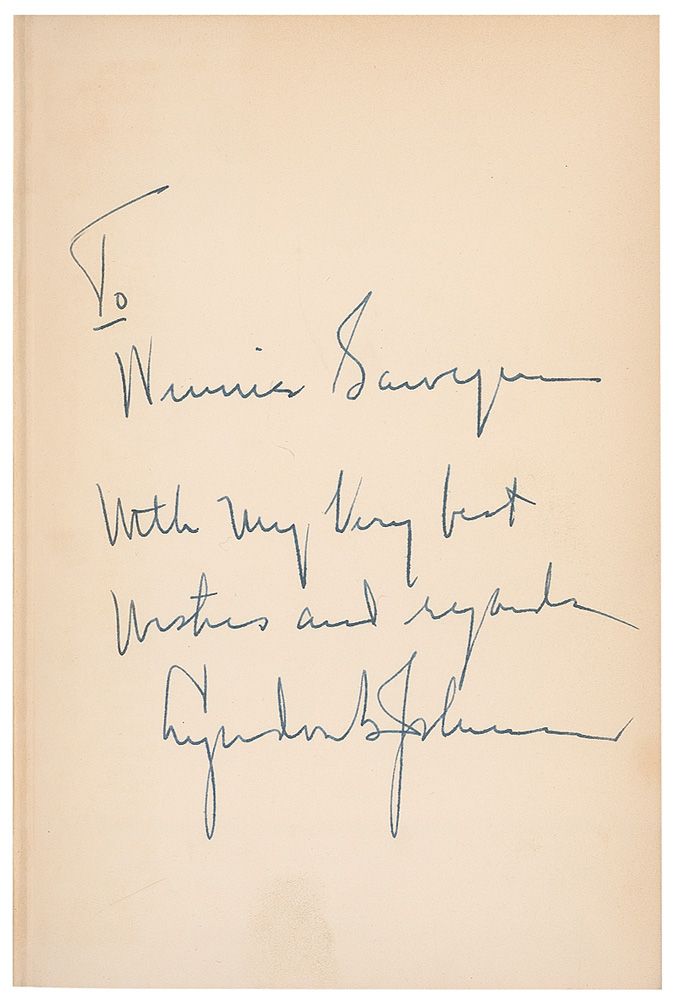 To
Winnie Sawyer
With my Very best
wishes and regards
Lyndon B Johnson